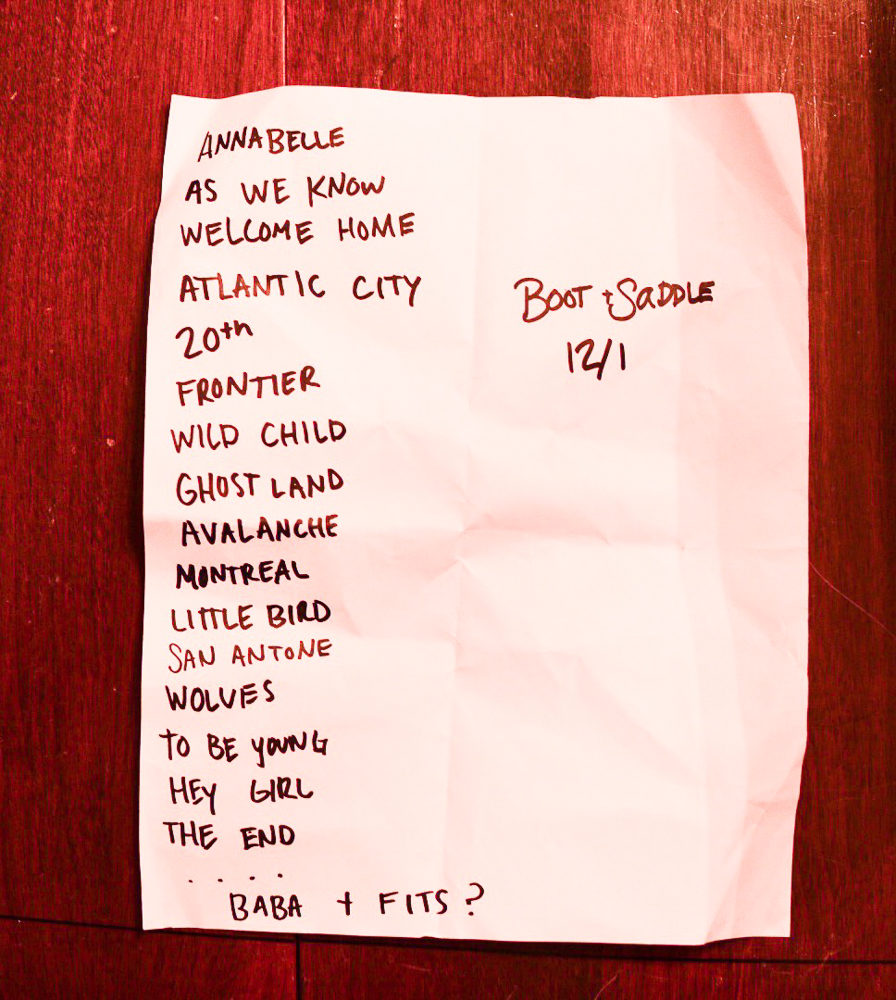 ANNABELLE
AS WE KNOW
WELCOME HOME
ATLANTIC CITY
20th
FRONTIER
WILD CHILD
GHOST LAND
AVALANCHE
MONTREAL
LITTLE BIRD
SAN ANTONE
WOLVES
TO BE YOUNG
HEY GIRL
THE END
. . . .
BABA + FITS?
BOOT + SADDLE
12/1